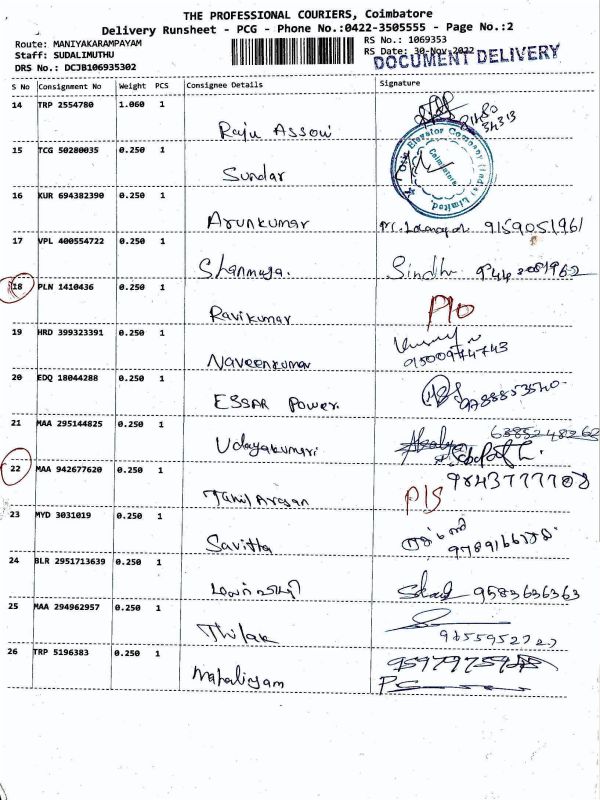 THE PROFESSIONAL COURIERS, Coimbatore
Delivery Runsheet - PCG - Phone No.:0422-3505555 - Page No.:2
Route: MANIYAKARAMPAYAM
RS No.: 1069353
Staff: SUDALIMUTHU
RS Date: 30-Nov-2022
DOCUMENT DELIVERY
DRS No.: DCJB106935302
S No Consignment No Weight PCS Consignee Details Signature
14 TRP 2554780 1.060 1
Raju Assou
15 TCG 50280035 0.250 1
Elevator Company (India) Limited.
Coimbatore
Sundar
16 KUR 694382390 0.250 1
Arunkumar 9159051961
17 VPL 400554722 0.250 1
Shanmuga. Sindhu
18 PLN 1410436 0.250 1
Ravikumar
19 HRD 399323391 0.250 1
Naveenkumar 9500974743
20 EDQ 18044288 0.250 1
ESSAR Power. 9788853540
21 MAA 295144825 0.250 1
6385248262
Udayakumari
22 MAA 942677620 0.250 1
9843777708
Tamil Arasan
23 MYD 3031019 0.250 1
Savitta
24 BLR 2951713639 0.250 1
9583636363
25 MAA 294962957 0.250 1
Thilak
26 TRP 5196383 0.250 1
Mahaliyam